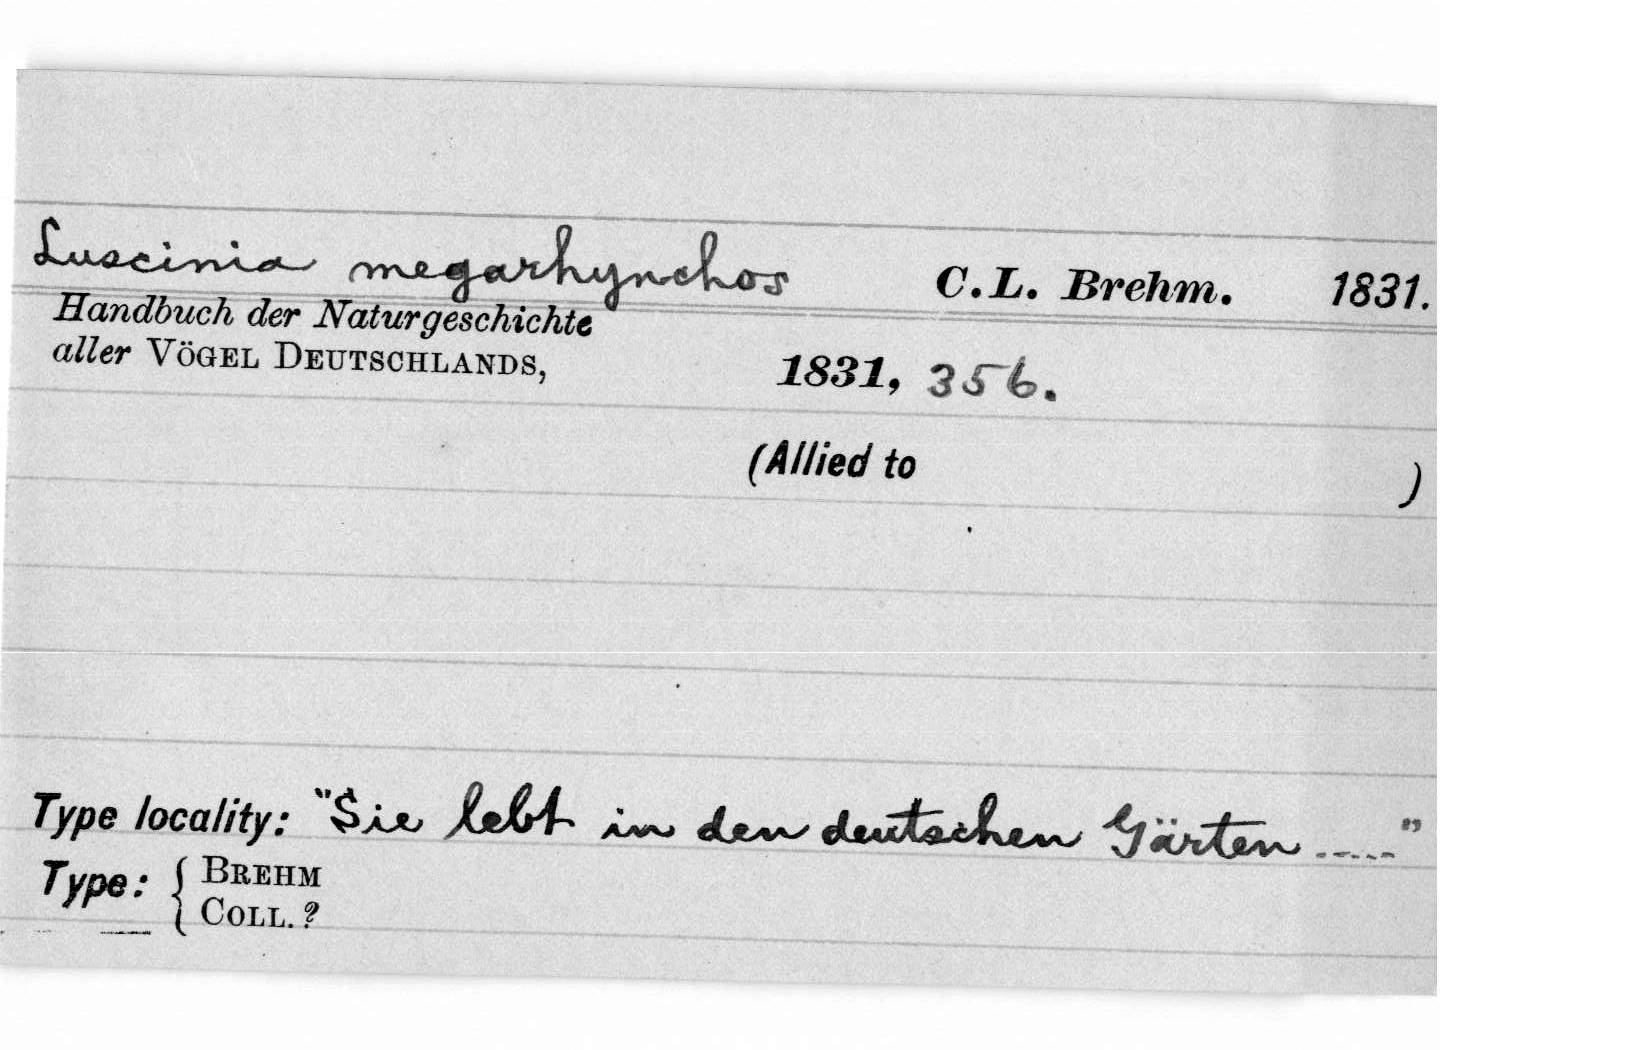 Luscinia megarhynchos C.L. Brehm. 1831.
Handbuch der Naturgeschichte
aller VÖGEL DEUTSCHLANDS, 1831, 356.
(Allied to )
Type locality: "Sie lebt in den deutschen Gärten ....."
Type: { BREHM
COLL. ?